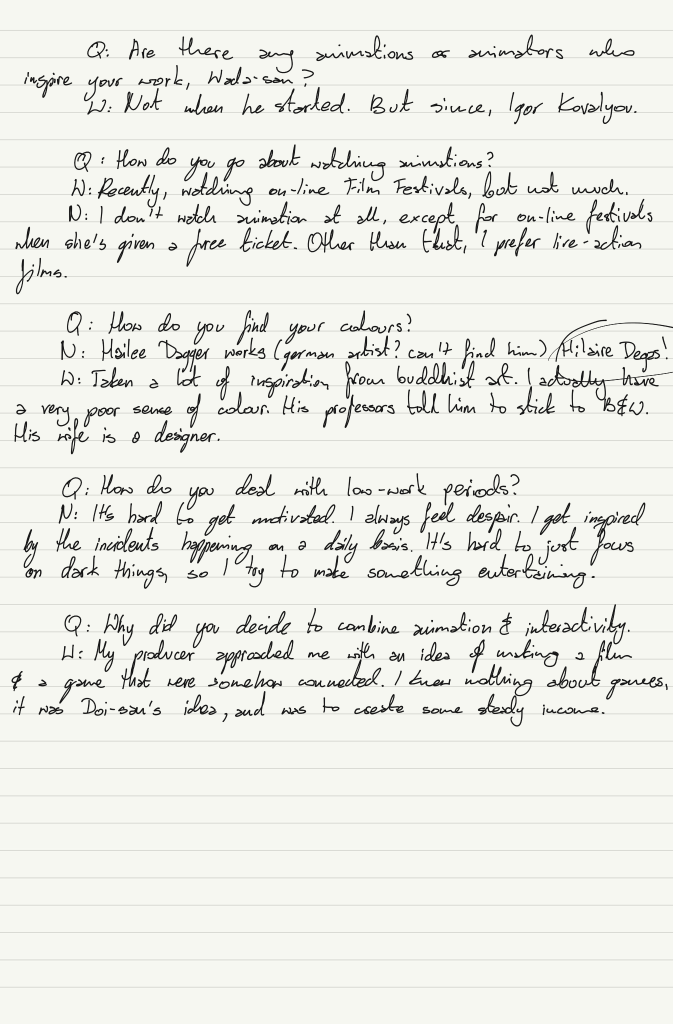 Q: Are there any animations or animators who
inspire your work, Wada-san?
W: Not when he started. But since, Igor Kovalyov.
Q: How do you go about watching animations?
W: Recently, watching on-line Film Festivals, but not much.
N: I don't watch animation at all, except for on-line festivals
when she's given a free ticket. Other than that, I prefer live-action
films.
Q: How do you find your colours?
N: Hailee Dagger works (german artist? can't find him) Hilaire Degas!
W: Taken a lot of inspiration from buddhist art. I actually have
a very poor sense of colour. His professors told him to stick to B&W.
His wife is a designer.
Q: How do you deal with low-work periods?
N: It's hard to get motivated. I always feel despair. I get inspired
by the incidents happening on a daily basis. It's hard to just focus
on dark things, so I try to make something entertaining.
Q: Why did you decide to combine animation & interactivity.
W: My producer approached me with an idea of making a film
& a game that were somehow connected. I knew nothing about games,
it was Doi-san's idea, and was to create some steady income.